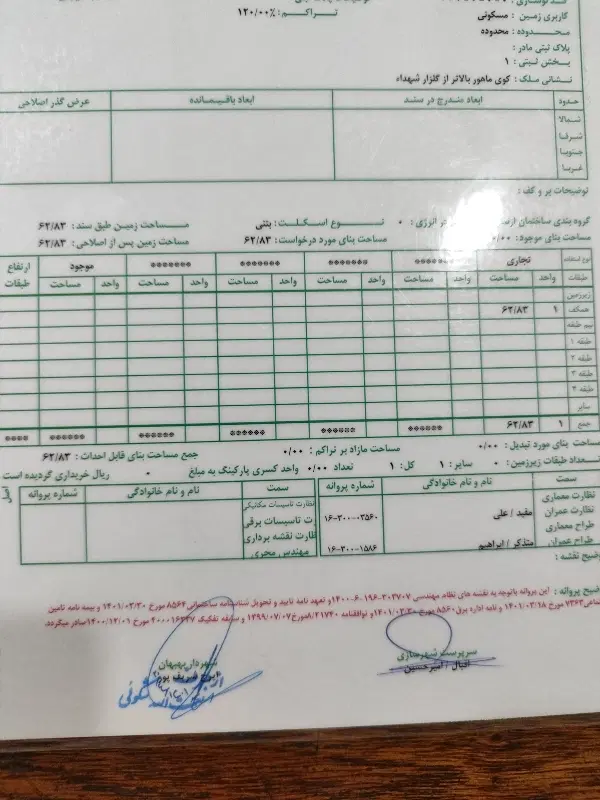 تراکم: ۱۲۰/۰۰%
کاربری زمین : مسکونی
محدوده : محدوده
پلاک ثبتی مادر:
بخش ثبتی : ۱
نشانی ملک : کوی ماهور بالاتر از گلزار شهداء
حدود ابعاد مندرج در سند ابعاد باقیمانده عرض گذر اصلاحی
شمالا
شرقا
جنوبا
غربا
توضیحات بر و کف :
گروه بندی ساختمان در انرژی : ۰ نوع اسکلت : بتنی مساحت زمین طبق سند : ۶۲/۸۳
مساحت بنای موجود: ۰/۰۰ مساحت بنای مورد درخواست: ۶۲/۸۳ مساحت زمین پس از اصلاحی: ۶۲/۸۳
نوع استفاده تجاری ******* ******* ******* ******* موجود ارتفاع طبقات
طبقات واحد مساحت واحد مساحت واحد مساحت واحد مساحت واحد مساحت واحد مساحت
زیرزمین
همکف ۱ ۶۲/۸۳
نیم طبقه
طبقه ۱
طبقه ۲
طبقه ۳
طبقه ۴
سایر
جمع ۱ ۶۲/۸۳ ****** ****** ****** ****** ****** ****
مساحت بنای مورد تبدیل : ۰/۰۰ مساحت مازاد بر تراکم : ۰/۰۰ جمع مساحت بنای قابل احداث : ۶۲/۸۳
تعداد طبقات زیرزمین: ۰ سایر : ۱ کل : ۱ تعداد ۰/۰۰ واحد کسری پارکینگ به مبلغ ۰ ریال خریداری گردیده است
سمت نام و نام خانوادگی شماره پروانه سمت نام و نام خانوادگی شماره پروانه
نظارت معماری نظارت تاسیسات مکانیکی
نظارت عمران مفید / علی ۱۶-۳۰۰-۰۳۵۶۰ ت تاسیسات برقی
طراح معماری ظارت نقشه برداری
طراح عمران متذکر / ابراهیم ۱۶-۳۰۰-۱۵۸۶ مهندس مجری
وضیح نقشه :
ضیح پروانه : این پروانه باتوجه به نقشه های نظام مهندسی ۳۰۳۷۰۷-۱۹۶-۶-۱۴۰۰ و تعهد نامه تایید و تحویل شناسنامه ساختمانی ۸۵۶۴ مورخ ۱۴۰۱/۰۳/۳۰ و بیمه نامه تامین
ماعی ۷۳۶۳ مورخ ۱۴۰۱/۰۳/۱۸ و نامه اداره برق ۸۵۶۰ مورخ ۱۴۰۱/۰۳/۳۰ و توافقنامه ۸/۲۱۷۴۰ مورخ ۱۳۹۹/۰۷/۰۷ و سابقه تفکیک ۴۰۰۰۱۶۳۴۷ مورخ ۱۴۰۰/۱۲/۰۱ صادر میگردد.
سرپرست شهرسازی
اقبال / امیرحسین
شهردار بهبهان
شریف پور